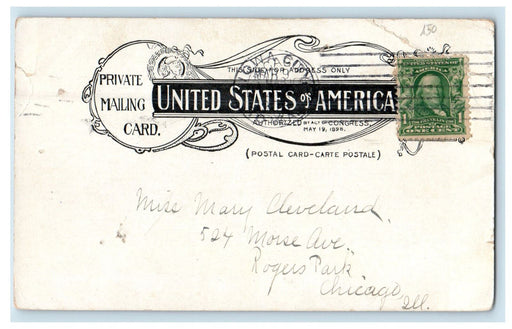 150
THIS SIDE FOR ADDRESS ONLY
PRIVATE
MAILING
CARD.
UNITED STATES OF AMERICA
AUTHORIZED BY ACT OF CONGRESS,
MAY 19, 1898.
(POSTAL CARD-CARTE POSTALE)
IOWA CITY
FRANKLIN
POSTAGE
1 ONE CENT 1
Miss Mary Cleveland.
524 Morse Ave.
Rogers Park
Chicago
Ill.